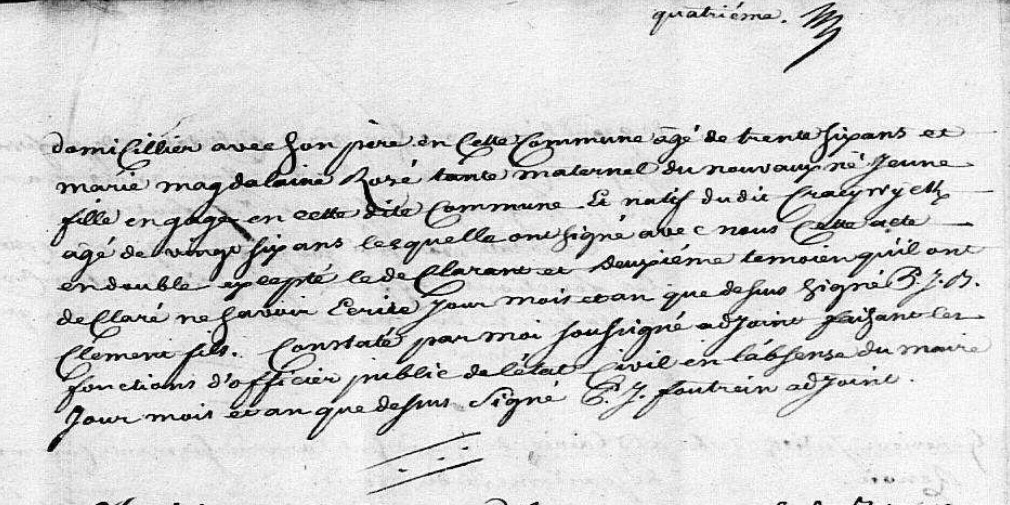 quatriéme.
domicillier avec son pere en cette Commune agé de trente six ans et
marie magdalaine Rozé tante maternel du nouvaux né Jeune
fille en gage en cette dite Commune Et natif du dit
agé de vingt six ans lesquelle ont signé avec nous cette acte
en double excepté le declarant et deuxiéme temoien qu'il ont
declaré ne savoir Ecrire Jour mois et an que dessus signé P. J. B.
Clément fils. Constaté par moi soussigné adjoint faisant les
fonctions d'officier public de l'état Civil en l'absense du maire
Jour mois et an que dessus Signé P. J. foutrein adjoint.